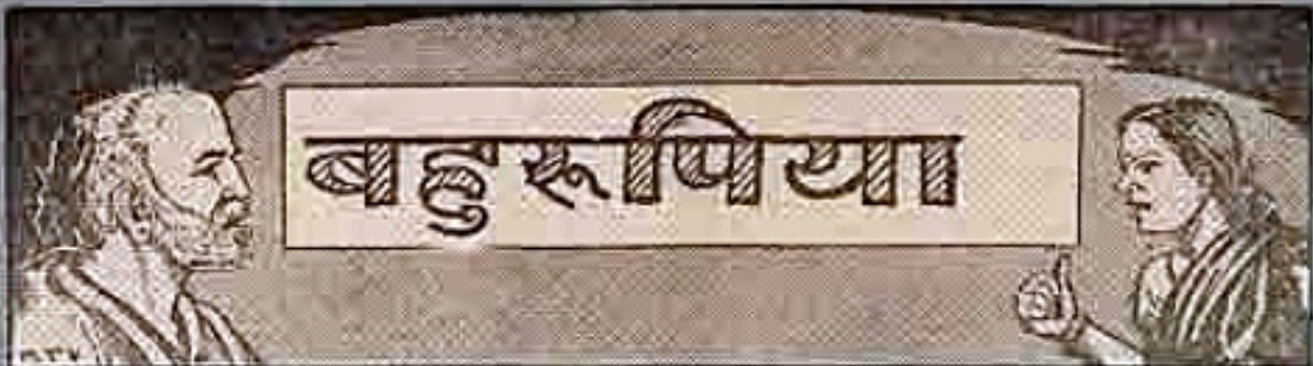 बहुरूपिया